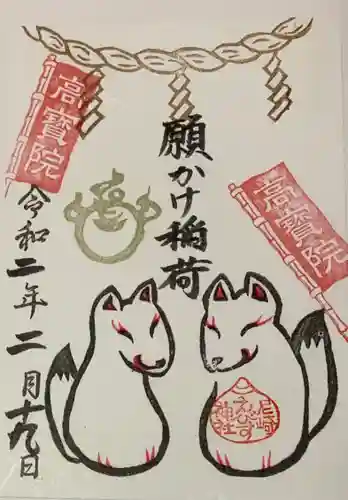 高寳院
願かけ稲荷
高寳院
令和二年二月十九日
尼崎
えびす
神社